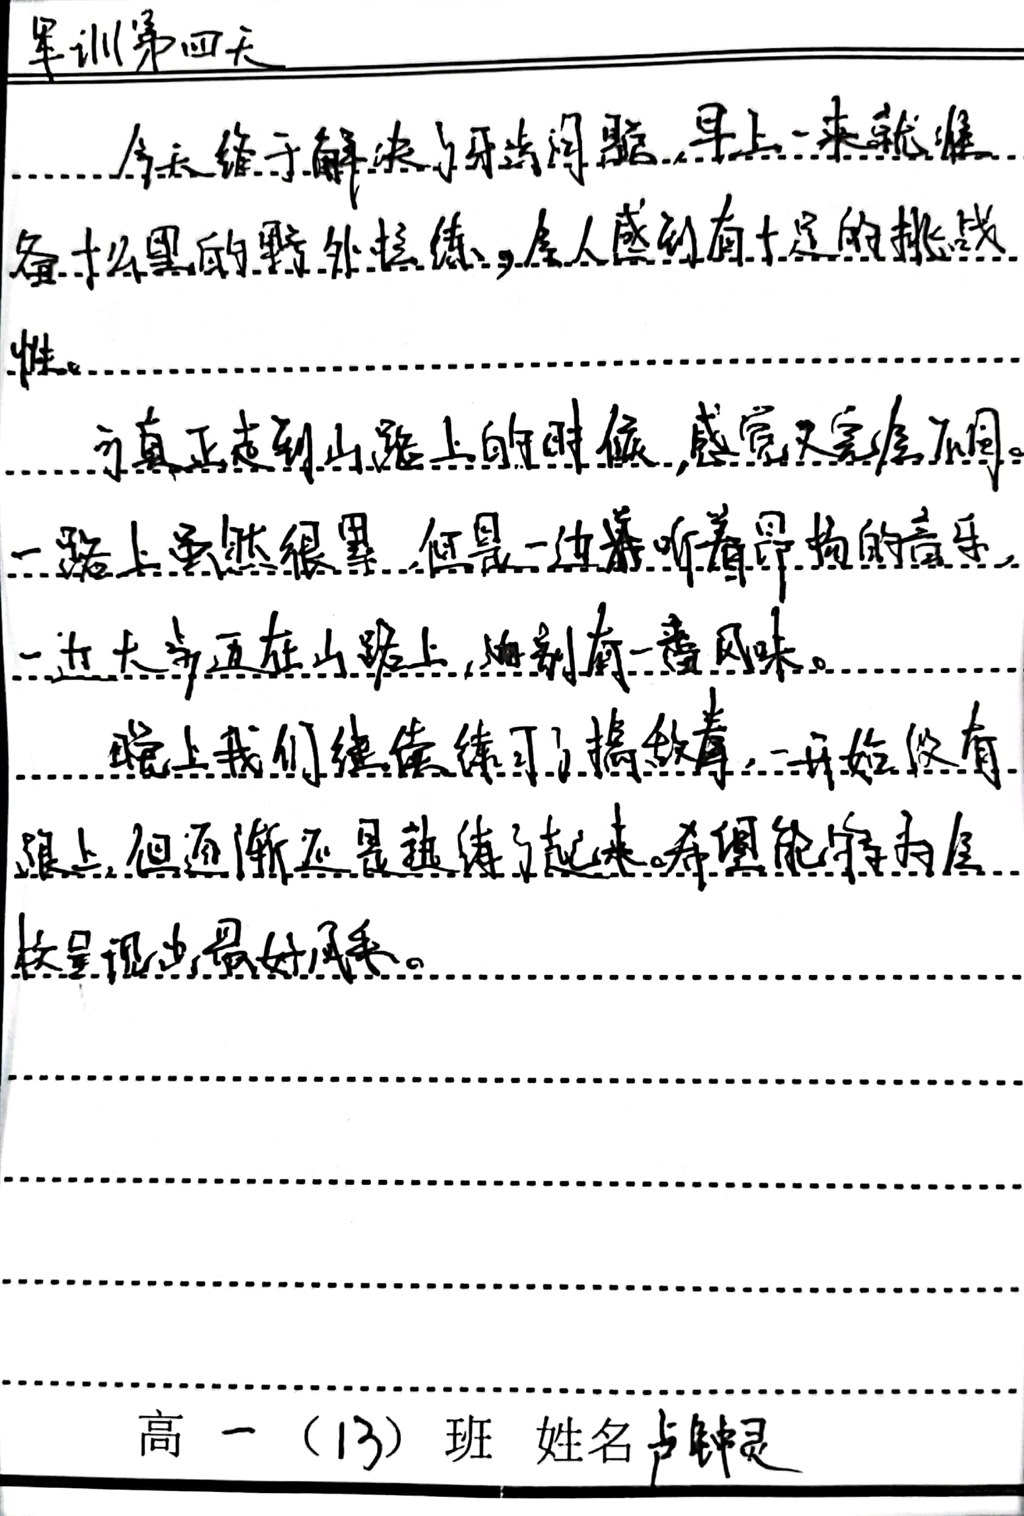 军训第四天
今天终于解决了牙齿问题,早上一来就准
备十公里的野外拉练,令人感到有十足的挑战
性。
可真正走到山路上的时候,感觉又完全不同。
一路上虽然很累,但是一边聆听着昂扬的音乐,
一边大步迈在山路上,别有一番风味。
晚上我们继续练习了擒敌拳,一开始没有
跟上,但逐渐还是熟练了起来。希望能够为全
校呈现出最好风采。
高 一 (13) 班 姓名 卢钟灵